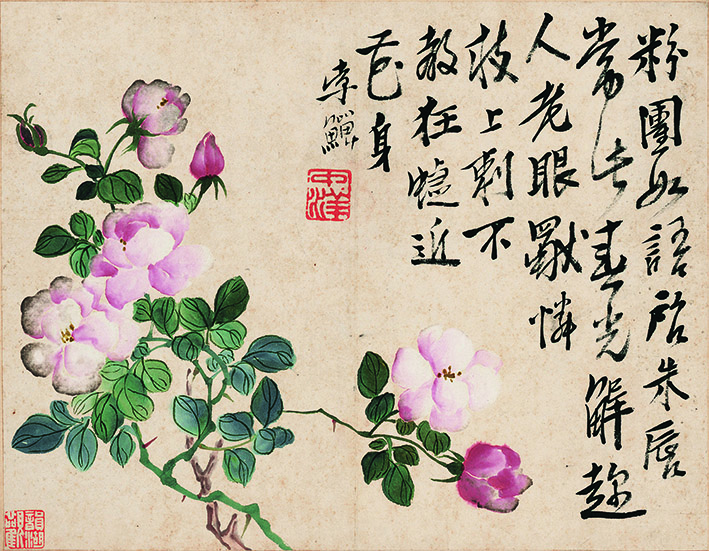 粉團如語啟朱唇
常春光解趁
人老眼戲憐
枝上刺不
教狂蝶近
花身
李鱓
中洋